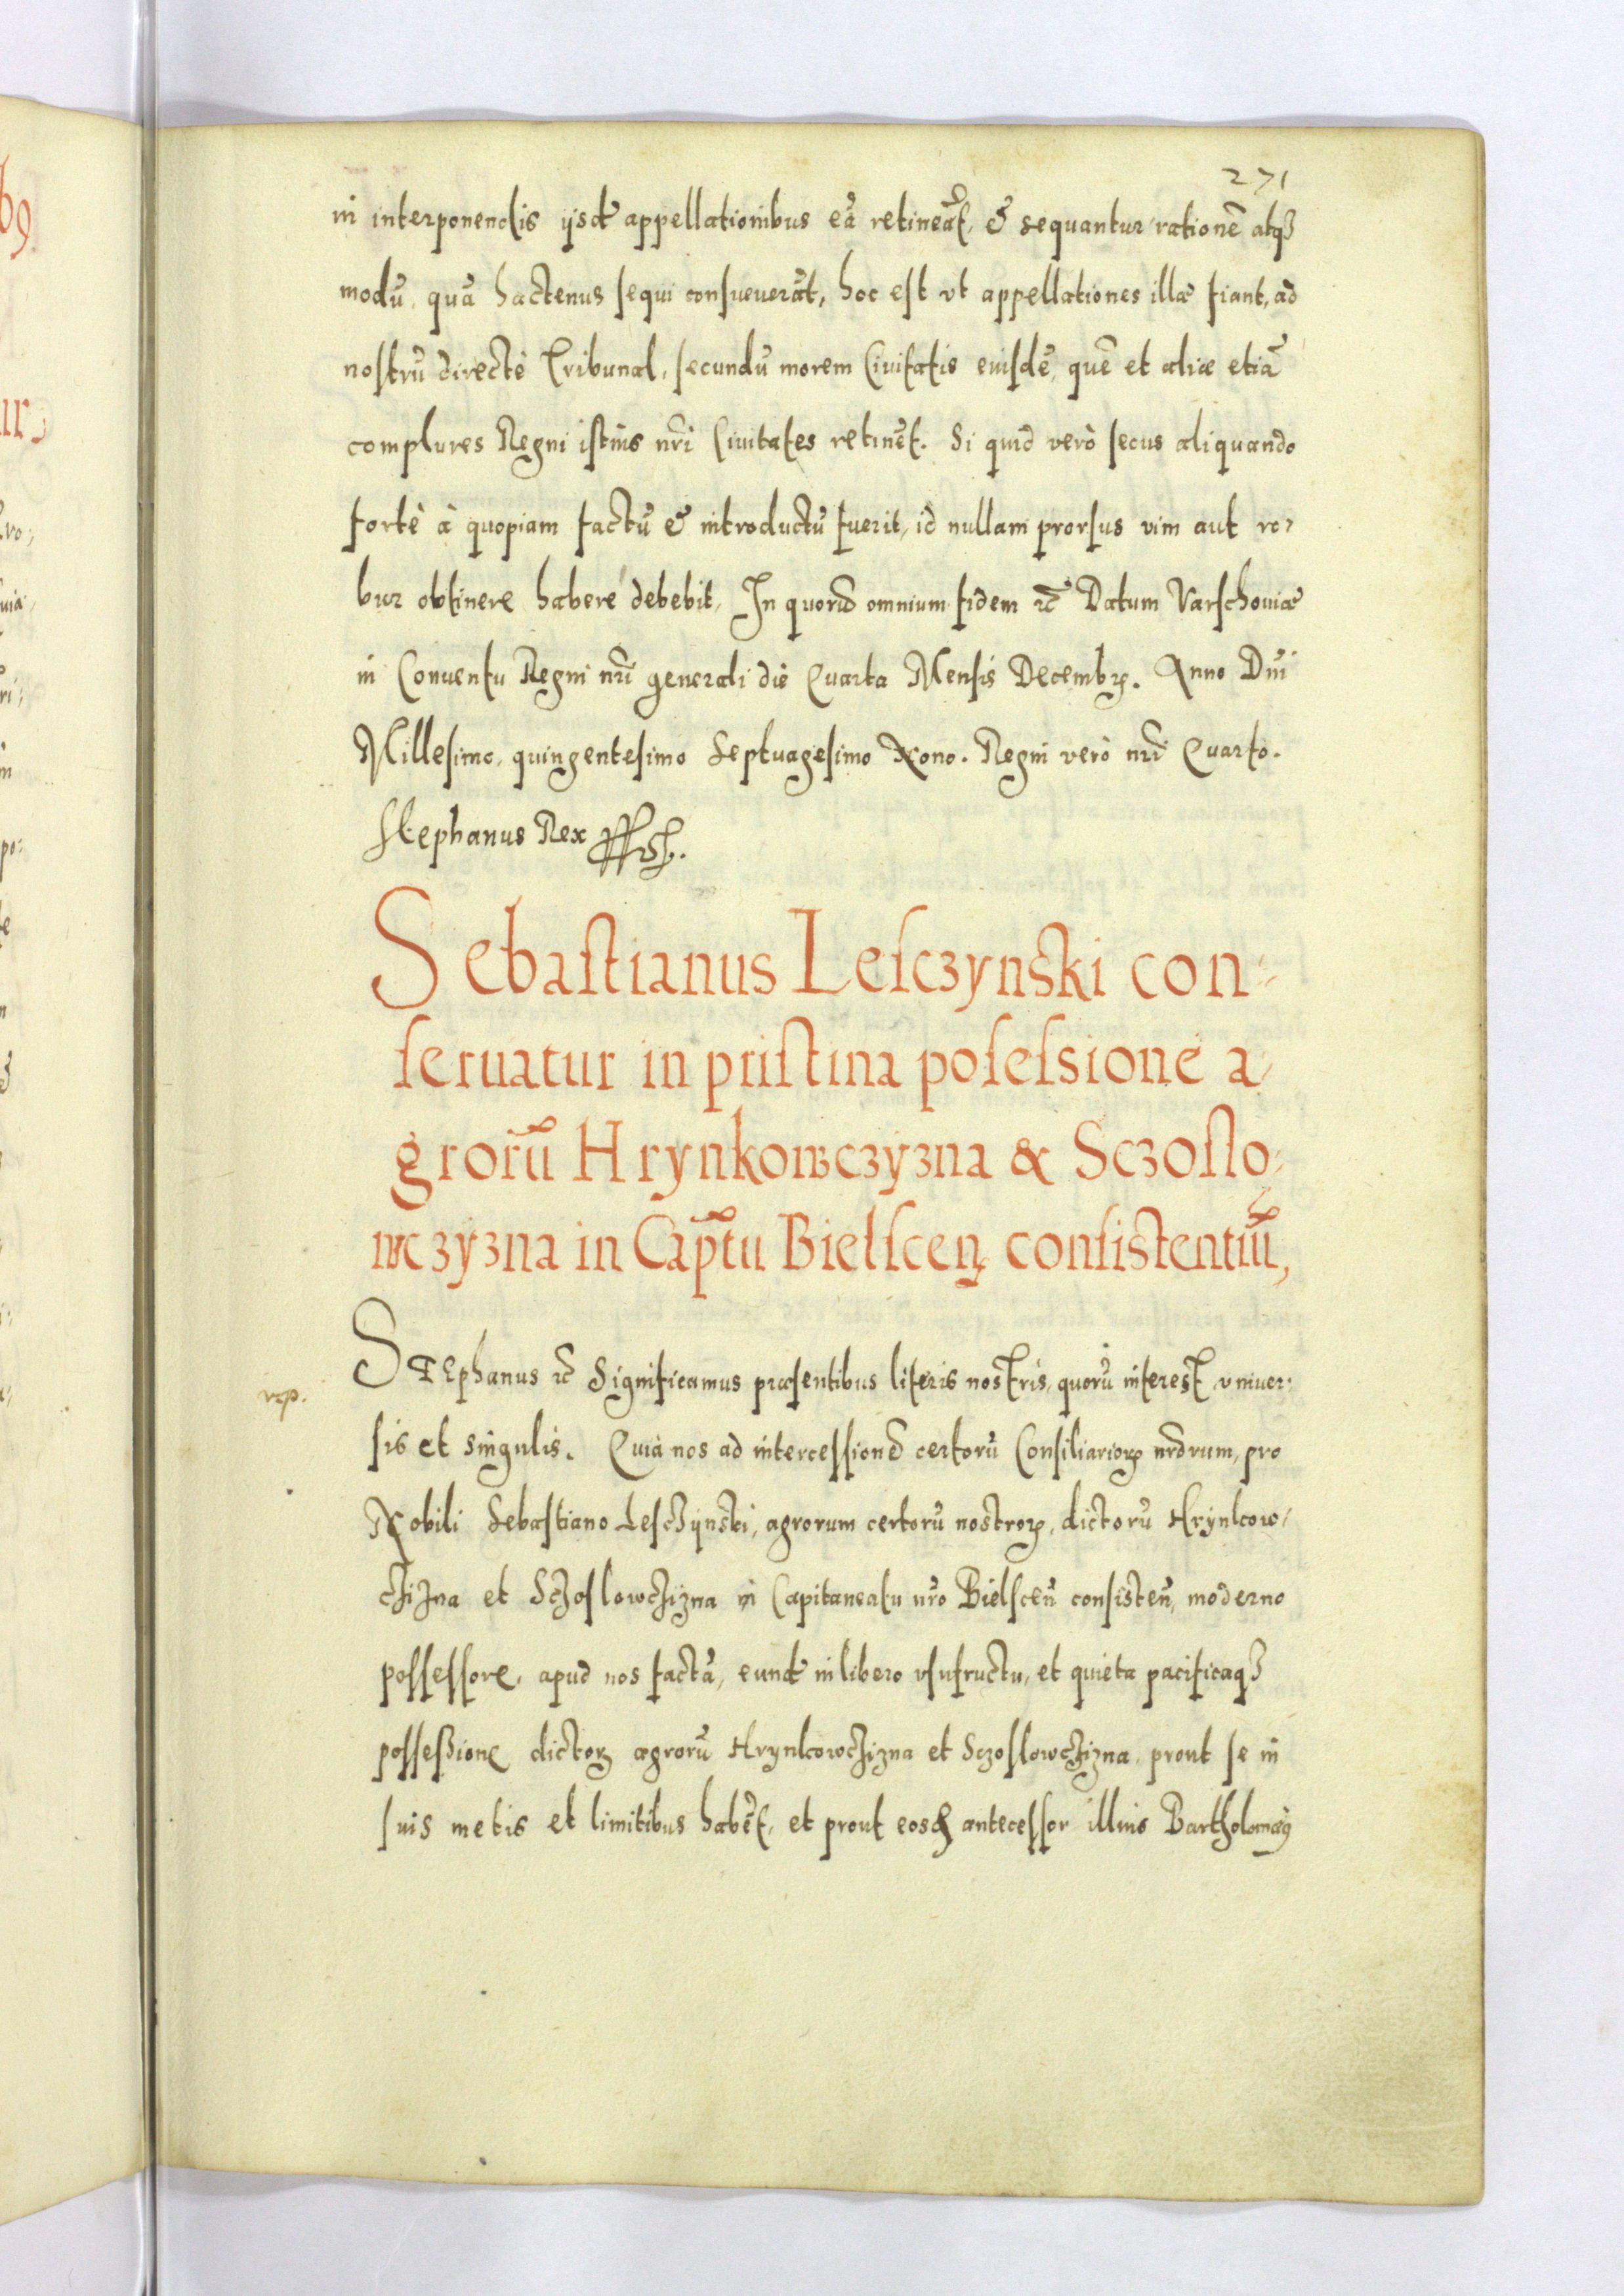 271
in interponendis ijsdē appellationibus eā retineāt, & sequantur rationē atqȝ
modū, quā hactenus sequi consueuerāt, hoc est vt appellationes illæ fiant, ad
nostrū directè Tribunal, secundū morem Ciuitatis euisdē, quē et aliæ etiā
complures Regni istius nrī Ciuitates retinēt. Si quid verò secus aliquando
fortè à quopiam factū & introductū fuerit, id nullam prorsus vim aut ro-
bur obtinere habere debebit, In quorū omnium fidem rc̄ Datum Varschouiæ
in Conuentu Regni nrī generali die Quarta Mensis Decembrꝫ. Anno Dnī
Millesimo, quingentesimo Septuagesimo Nono. Regni verò nrī Quarto.
Stephanus Rex
Sebastianus Lesczynski con-
seruatur in pristina posessione a-
grorū Hrynkowczyzna & Sczoslo-
wczyzna in Cap̄tu Bielscen̨ consistentiū,
rcp.
STEphanus rc̄ Significamus præsentibus literis nostris, quorū interest vniuer-
sis et singulis. Quià nos ad intercessionē certorū Consiliarioꝝ nrōrum, pro
Nobili Sebastiano Lesczijnski, agrorum certorū nostroꝝ, dictorū Hrynkow-
czizna et Sczoslowczizna in Capitaneatu nrō Bielscen̄ consisten̄, moderno
possessore, apud nos factā, eundē in libero vsufructu, et quieta pacificaqȝ
possessione dictoꝝ agrorū Hrynkowczizna et Sczoslowczizna, prout se in
suis metis et limitibus habēt, et prout eosd̄ antecessor illius Bartholomæꝰ